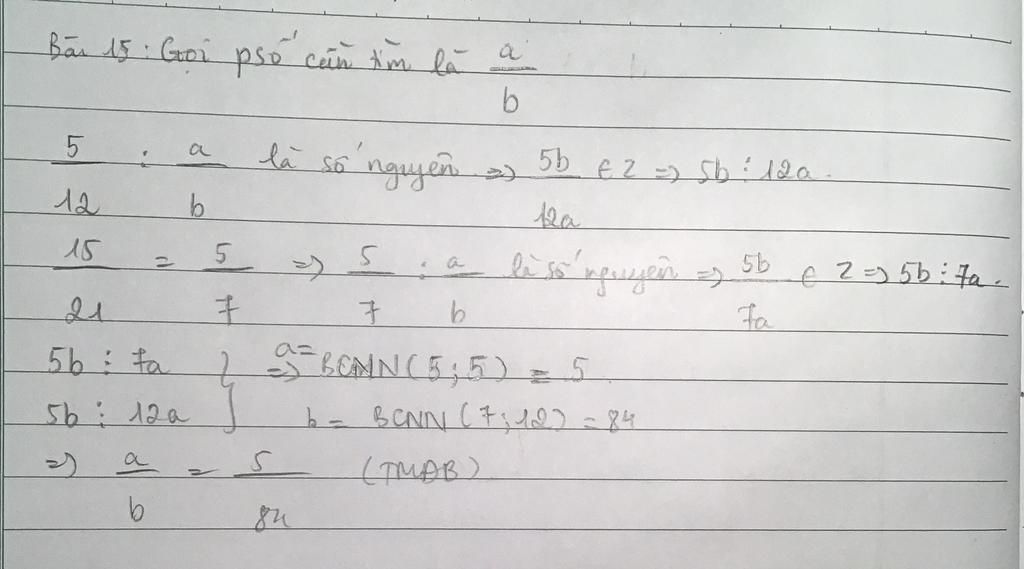 Bài 15: Gọi psố cần tìm là a/b
5/12 : a/b là số nguyên => 5b/12a ∈ Z => 5b ⋮ 12a.
15/21 = 5/7 => 5/7 : a/b là số nguyên => 5b/7a ∈ Z => 5b ⋮ 7a.
5b ⋮ 7a } => a = BCNN(5;5) = 5
5b ⋮ 12a } b = BCNN(7;12) = 84
=> a/b = 5/84 (TMĐB)